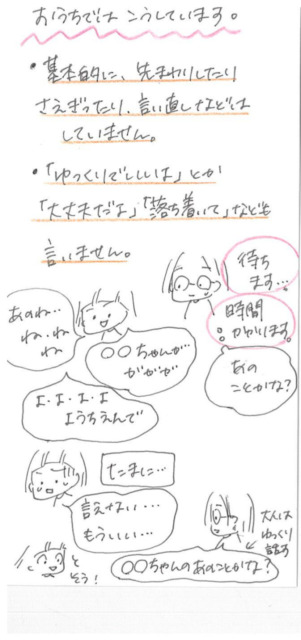 おうちでは こうしています。
・基本的に、先まわりしたり
さえぎったり、言い直しなどは
していません。
・「ゆっくりでいいよ」とか
「大丈夫だよ」「落ち着いて」なども
言いません。
待ち
ます…
時間
かかります
あのね…
ね・ね・ね
ね
〇〇ちゃんが…
がががが
あの
ことかな?
よ・よ・よ・よ
ようちえんで
たまに…
言えない…
もういい…
と
そう!
大人は
ゆっくり
話す
〇〇ちゃんのあのことかな?